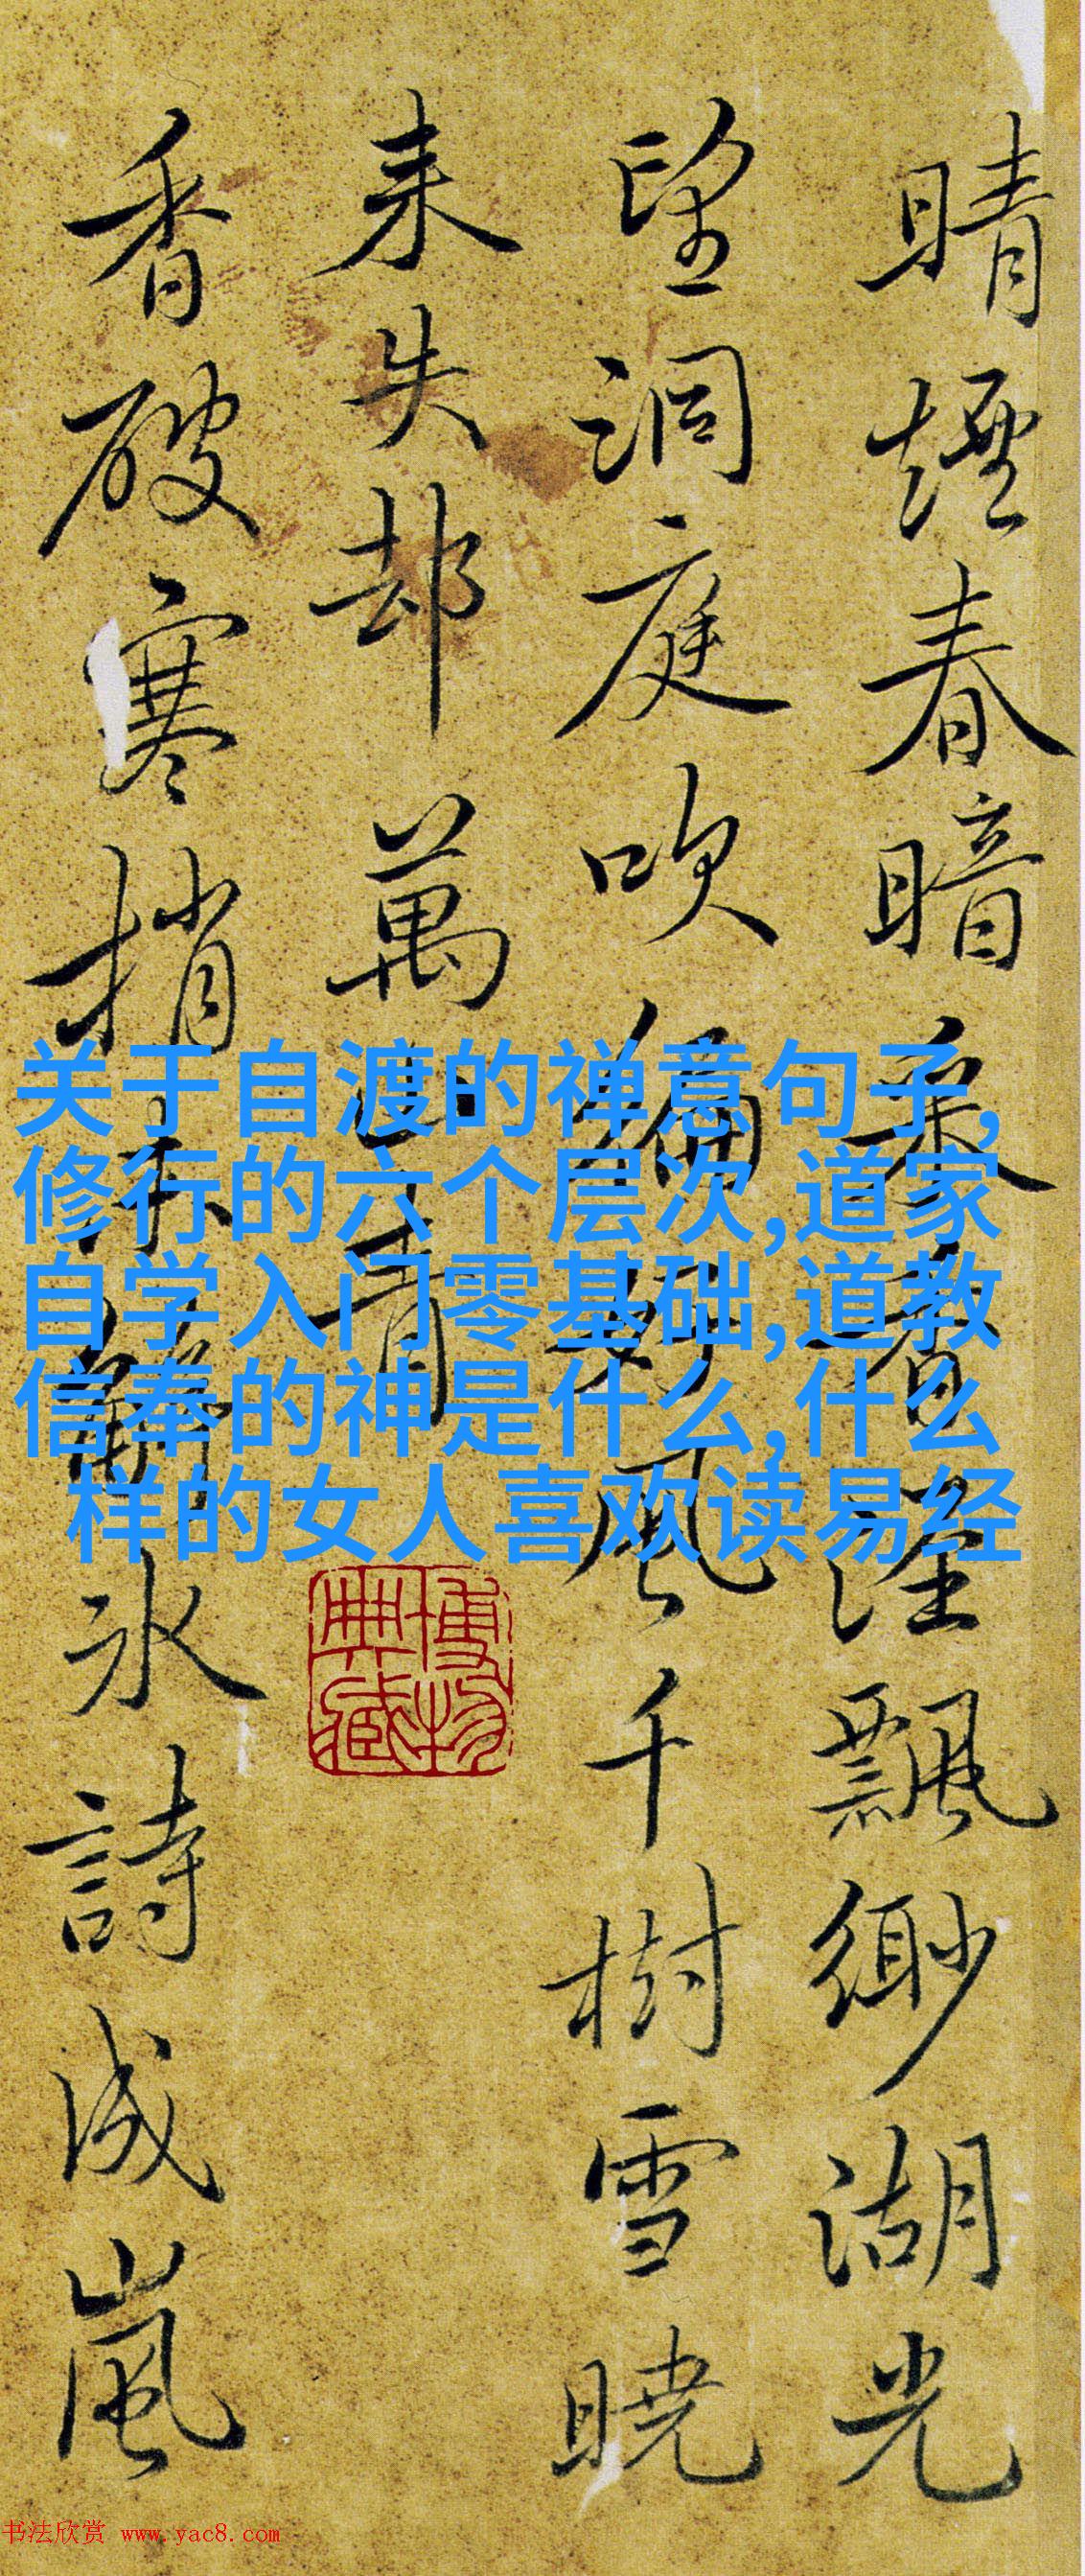 晴煙春暗飄緲湖光
望洞庭吹徧好風千樹雪曉
来失却萬山青
香破寒梢氷詩成嵐
关于自渡的禅意句子,
修行的六个层次,道家
自学入门零基础,道教
信奉的神是什么,什么
样的女人喜欢读易经
博物
典藏
书法欣赏 www.yac8.com